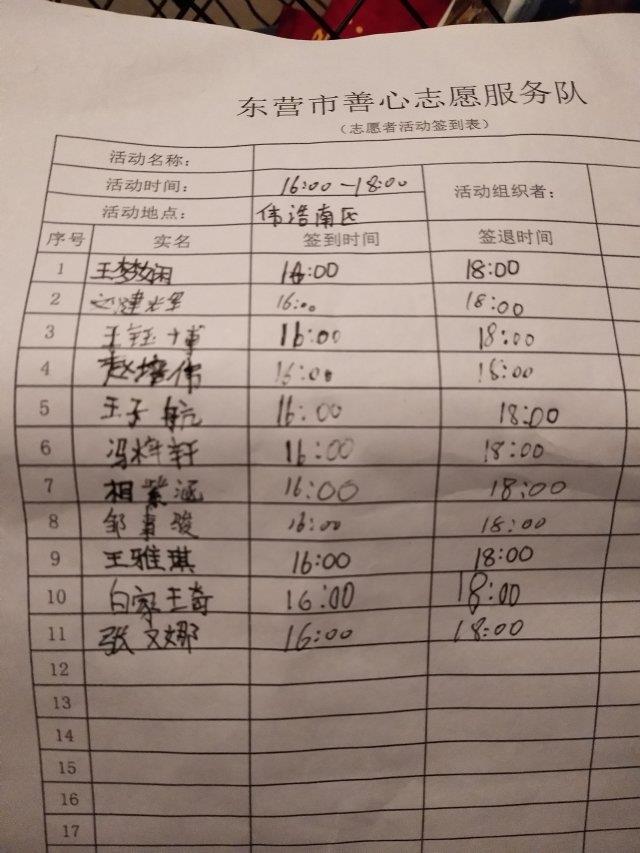 东营市善心志愿服务队
（志愿者活动签到表）
活动名称：
活动时间： 16:00-18:00 活动组织者：
活动地点： 伟浩南区
序号 实名 签到时间 签退时间
1 王梦娴 16:00 18:00
2 16:00 18:00
3 王钰博 16:00 18:00
4 赵培伟 16:00 18:00
5 王子航 16:00 18:00
6 冯梓轩 16:00 18:00
7 相紫涵 16:00 18:00
8 邹 骏 16:00 18:00
9 王雅琪 16:00 18:00
10 白家琦 16:00 18:00
11 张文娜 16:00 18:00
12
13
14
15
16
17